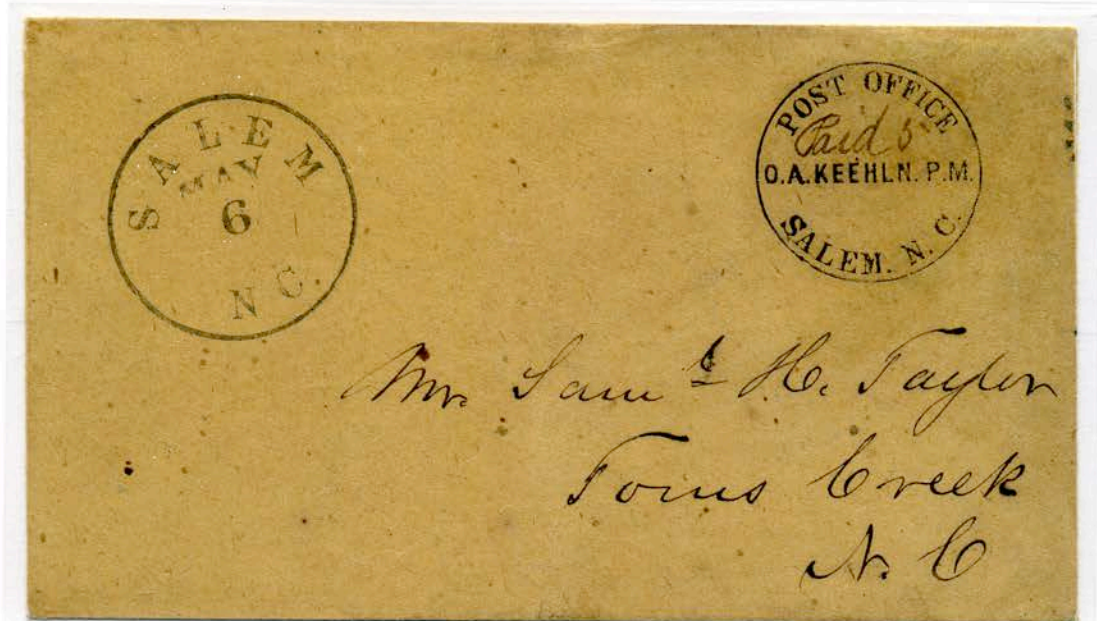 SALEM
MAY
6
N C.
POST OFFICE
Paid 5
O.A. KEEHLN. P.M.
SALEM. N. C.
Mr. Saml H. Taylor
Toms Creek
N. C